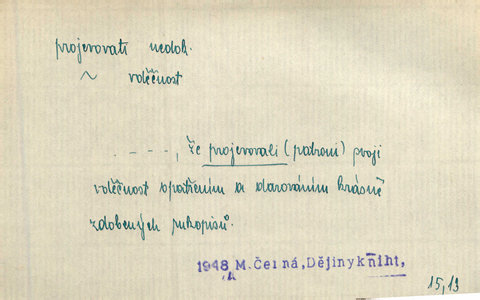 projevovati nedok.
~ vděčnost
- - - -, že projevovali (patroni) svoji
vděčnost opatřením a darováním krásně
zdobených rukopisů.
1948 M. Černá, Dějiny kniht,
15,19